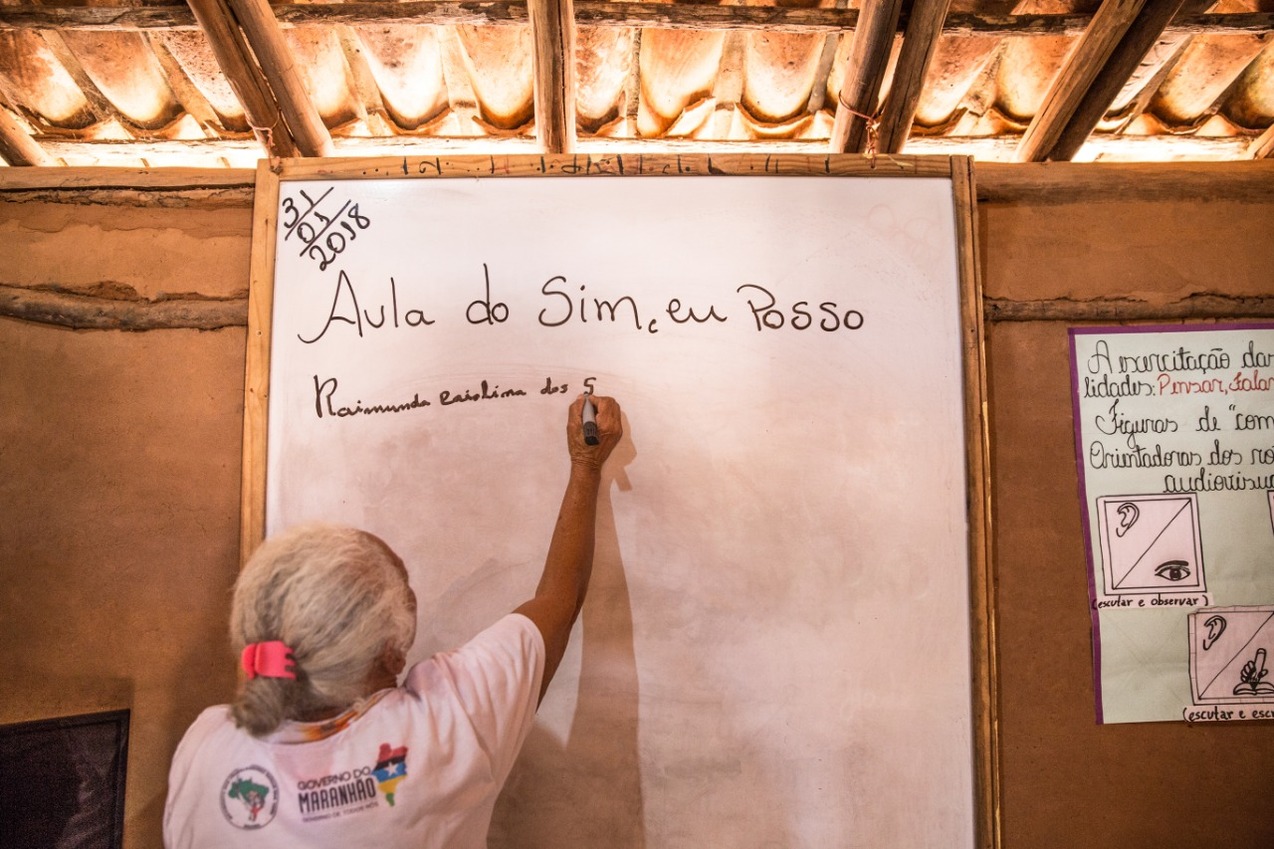 31
01
2018
Aula do Sim, eu Posso
Raimunda Carolina dos S
A exercitação das
lidades: Pensar, falar
Figuras de "com
Orientadoras dos ro
audiovisua
(escutar e observar)
(escutar e escr
GOVERNO DO
MARANHÃO
GOVERNO DE TODOS NÓS